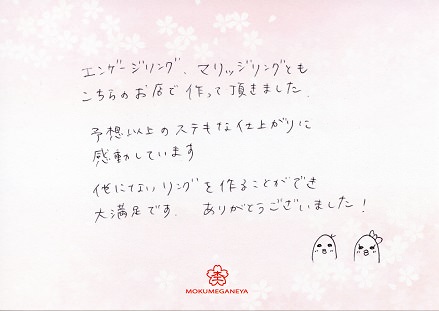 エンゲージリング、マリッジリングとも
こちらのお店で作って頂きました.
予想以上のステキな仕上がりに
感動しています
他にないリングを作ることができ
大満足です. ありがとうございました!
MOKUMEGANEYA